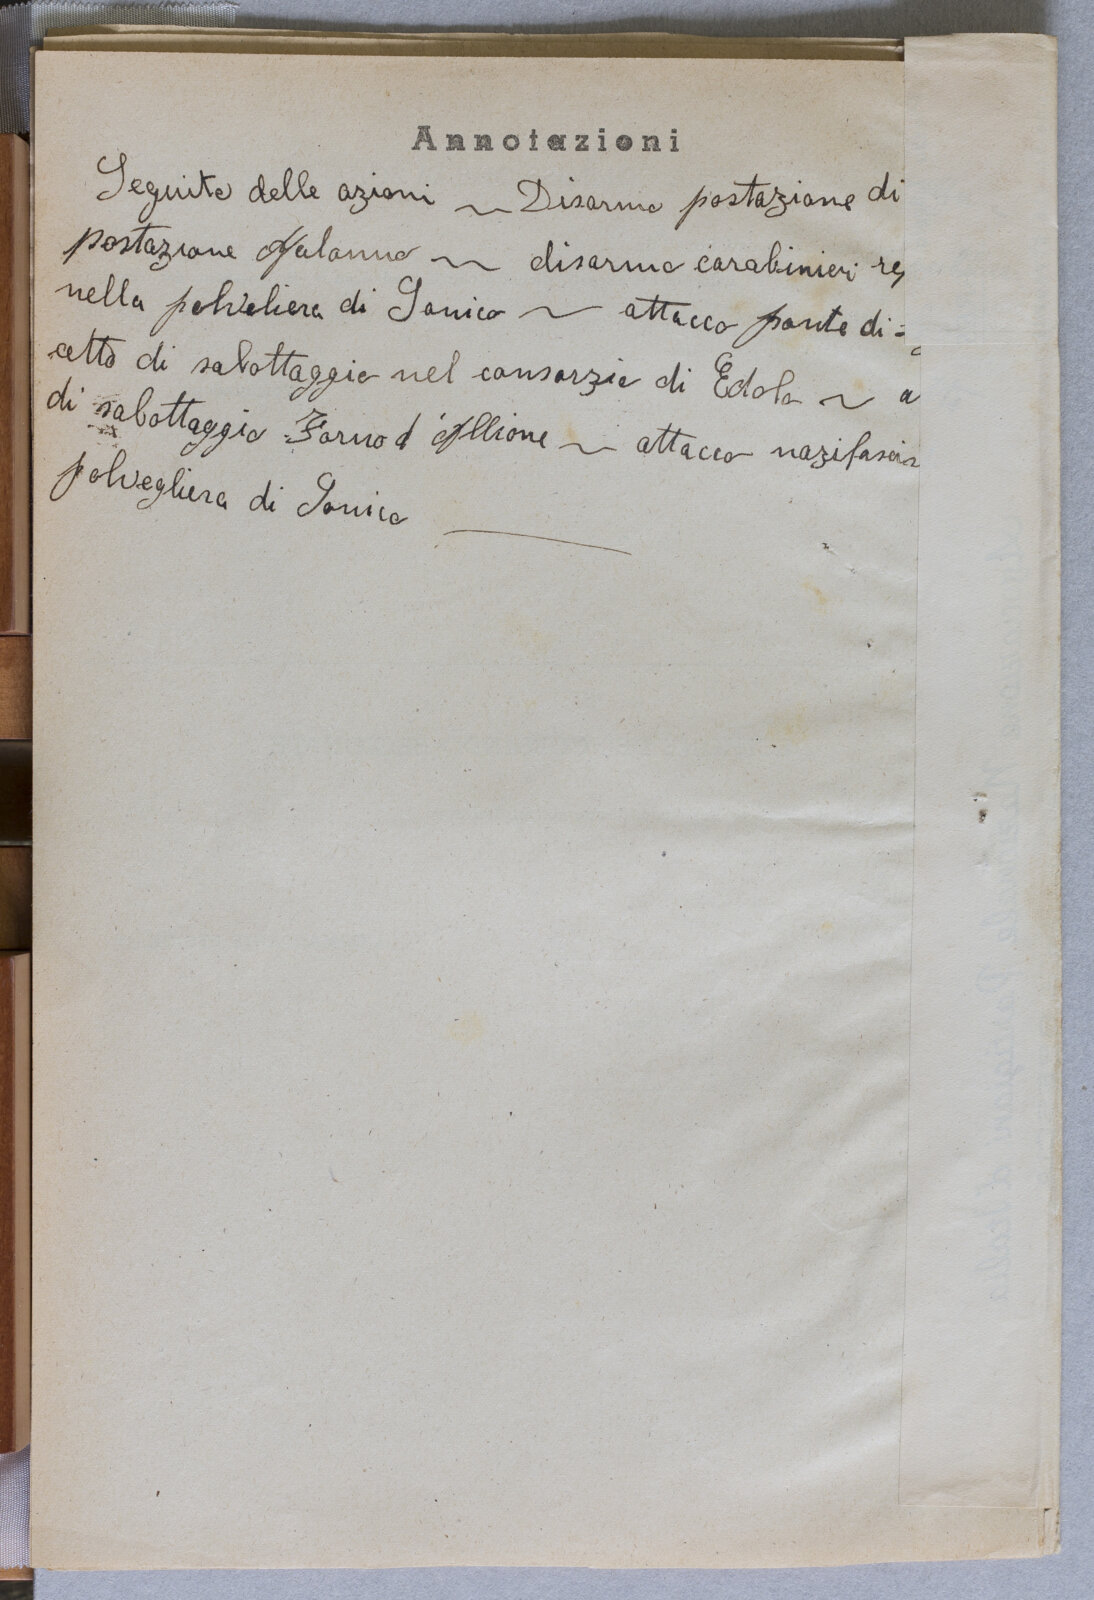 Annotazioni
Seguito delle azioni ~ Disarmo postazione di
postazione Malonno ~ disarmo carabinieri
nella polveliera di Sonico ~ attacco ponte di =
atto di sabottaggio nel consorzio di Edolo ~ a
di sabottaggio Forno d'Allione ~ attacco nazifascis
polvegliera di Sonico